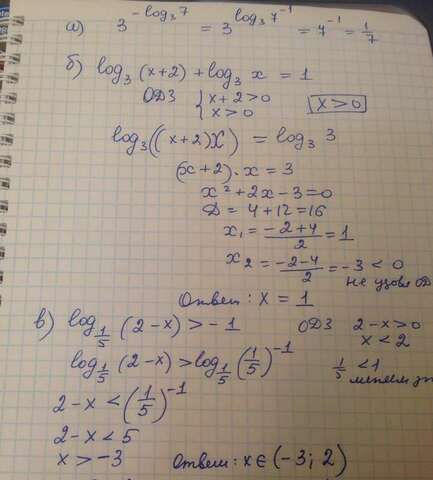 а) 3^{-log₃7} = 3^{log₃7⁻¹} = 7⁻¹ = 1/7
б) log₃(x+2) + log₃ x = 1
ОДЗ { x+2>0 x>0 x>0
log₃((x+2)x) = log₃ 3
(x+2)·x = 3
x²+2x-3=0
Д = 4+12=16
x₁ = (-2+4)/2 = 1
x₂ = (-2-4)/2 = -3 < 0
не удовл ОД
Ответ: x = 1
в) log_{1/5}(2-x) > -1 ОДЗ 2-x>0
x<2
log_{1/5}(2-x) > log_{1/5}(1/5)⁻¹ 1/5 <1
меняем
2-x < (1/5)⁻¹
2-x < 5
x > -3 Ответ: x∈(-3; 2)